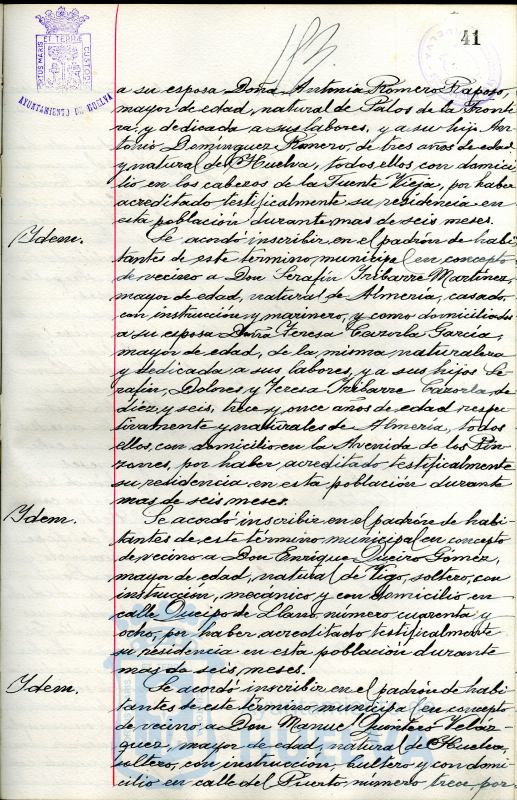 41
PORTUS MARIS ET TERRÆ CUSTODIA
AYUNTAMIENTO DE HUELVA
a su esposa Doña Antonia Romero Raposo,
mayor de edad, natural de Palos de la Fronte
ra, y dedicada a sus labores, y a su hijo An
tonio Dominguez Romero, de tres años de edad
y natural de Huelva, todos ellos, con domici
lio en los cabezos de la Fuente Vieja, por haber
acreditado testificalmente su residencia en
esta población durante mas de seis meses.
Idem.
Se acordó inscribir, en el padrón de habi
tantes de este término municipal en concepto
de vecino a Don Serafín Iribarre Martínez,
mayor de edad, natural de Almería, casado,
con instrucción y marinero, y como domiciliados
a su esposa Doña Teresa Cazorla García,
mayor de edad, de la misma naturaleza
y dedicada a sus labores, y a sus hijos Se
rafín, Dolores y Teresa Iribarre Cazorla, de
diez y seis, trece y once años de edad respec
tivamente y naturales de Almería, todos
ellos, con domicilio en la Avenida de los Pin
zones, por haber acreditado testificalmente
su residencia en esta población durante
mas de seis meses.
Idem.
Se acordó inscribir en el padrón de habi
tantes de este término municipal en concepto
de vecino a Don Enrique Queiro Gómez,
mayor de edad, natural de Vigo, soltero, con
instrucción, mecánico y con domicilio en
calle Queipo de Llano, número cuarenta y
ocho, por haber acreditado testificalmente
su residencia en esta población durante
mas de seis meses.
Idem.
Se acordó inscribir en el padrón de habi
tantes de este término municipal en concepto
de vecino a Don Manuel Quintero Veláz
quez, mayor de edad, natural de Huelva,
soltero, con instrucción, bultero y con domi
cilio en calle del Puerto, número trece, por